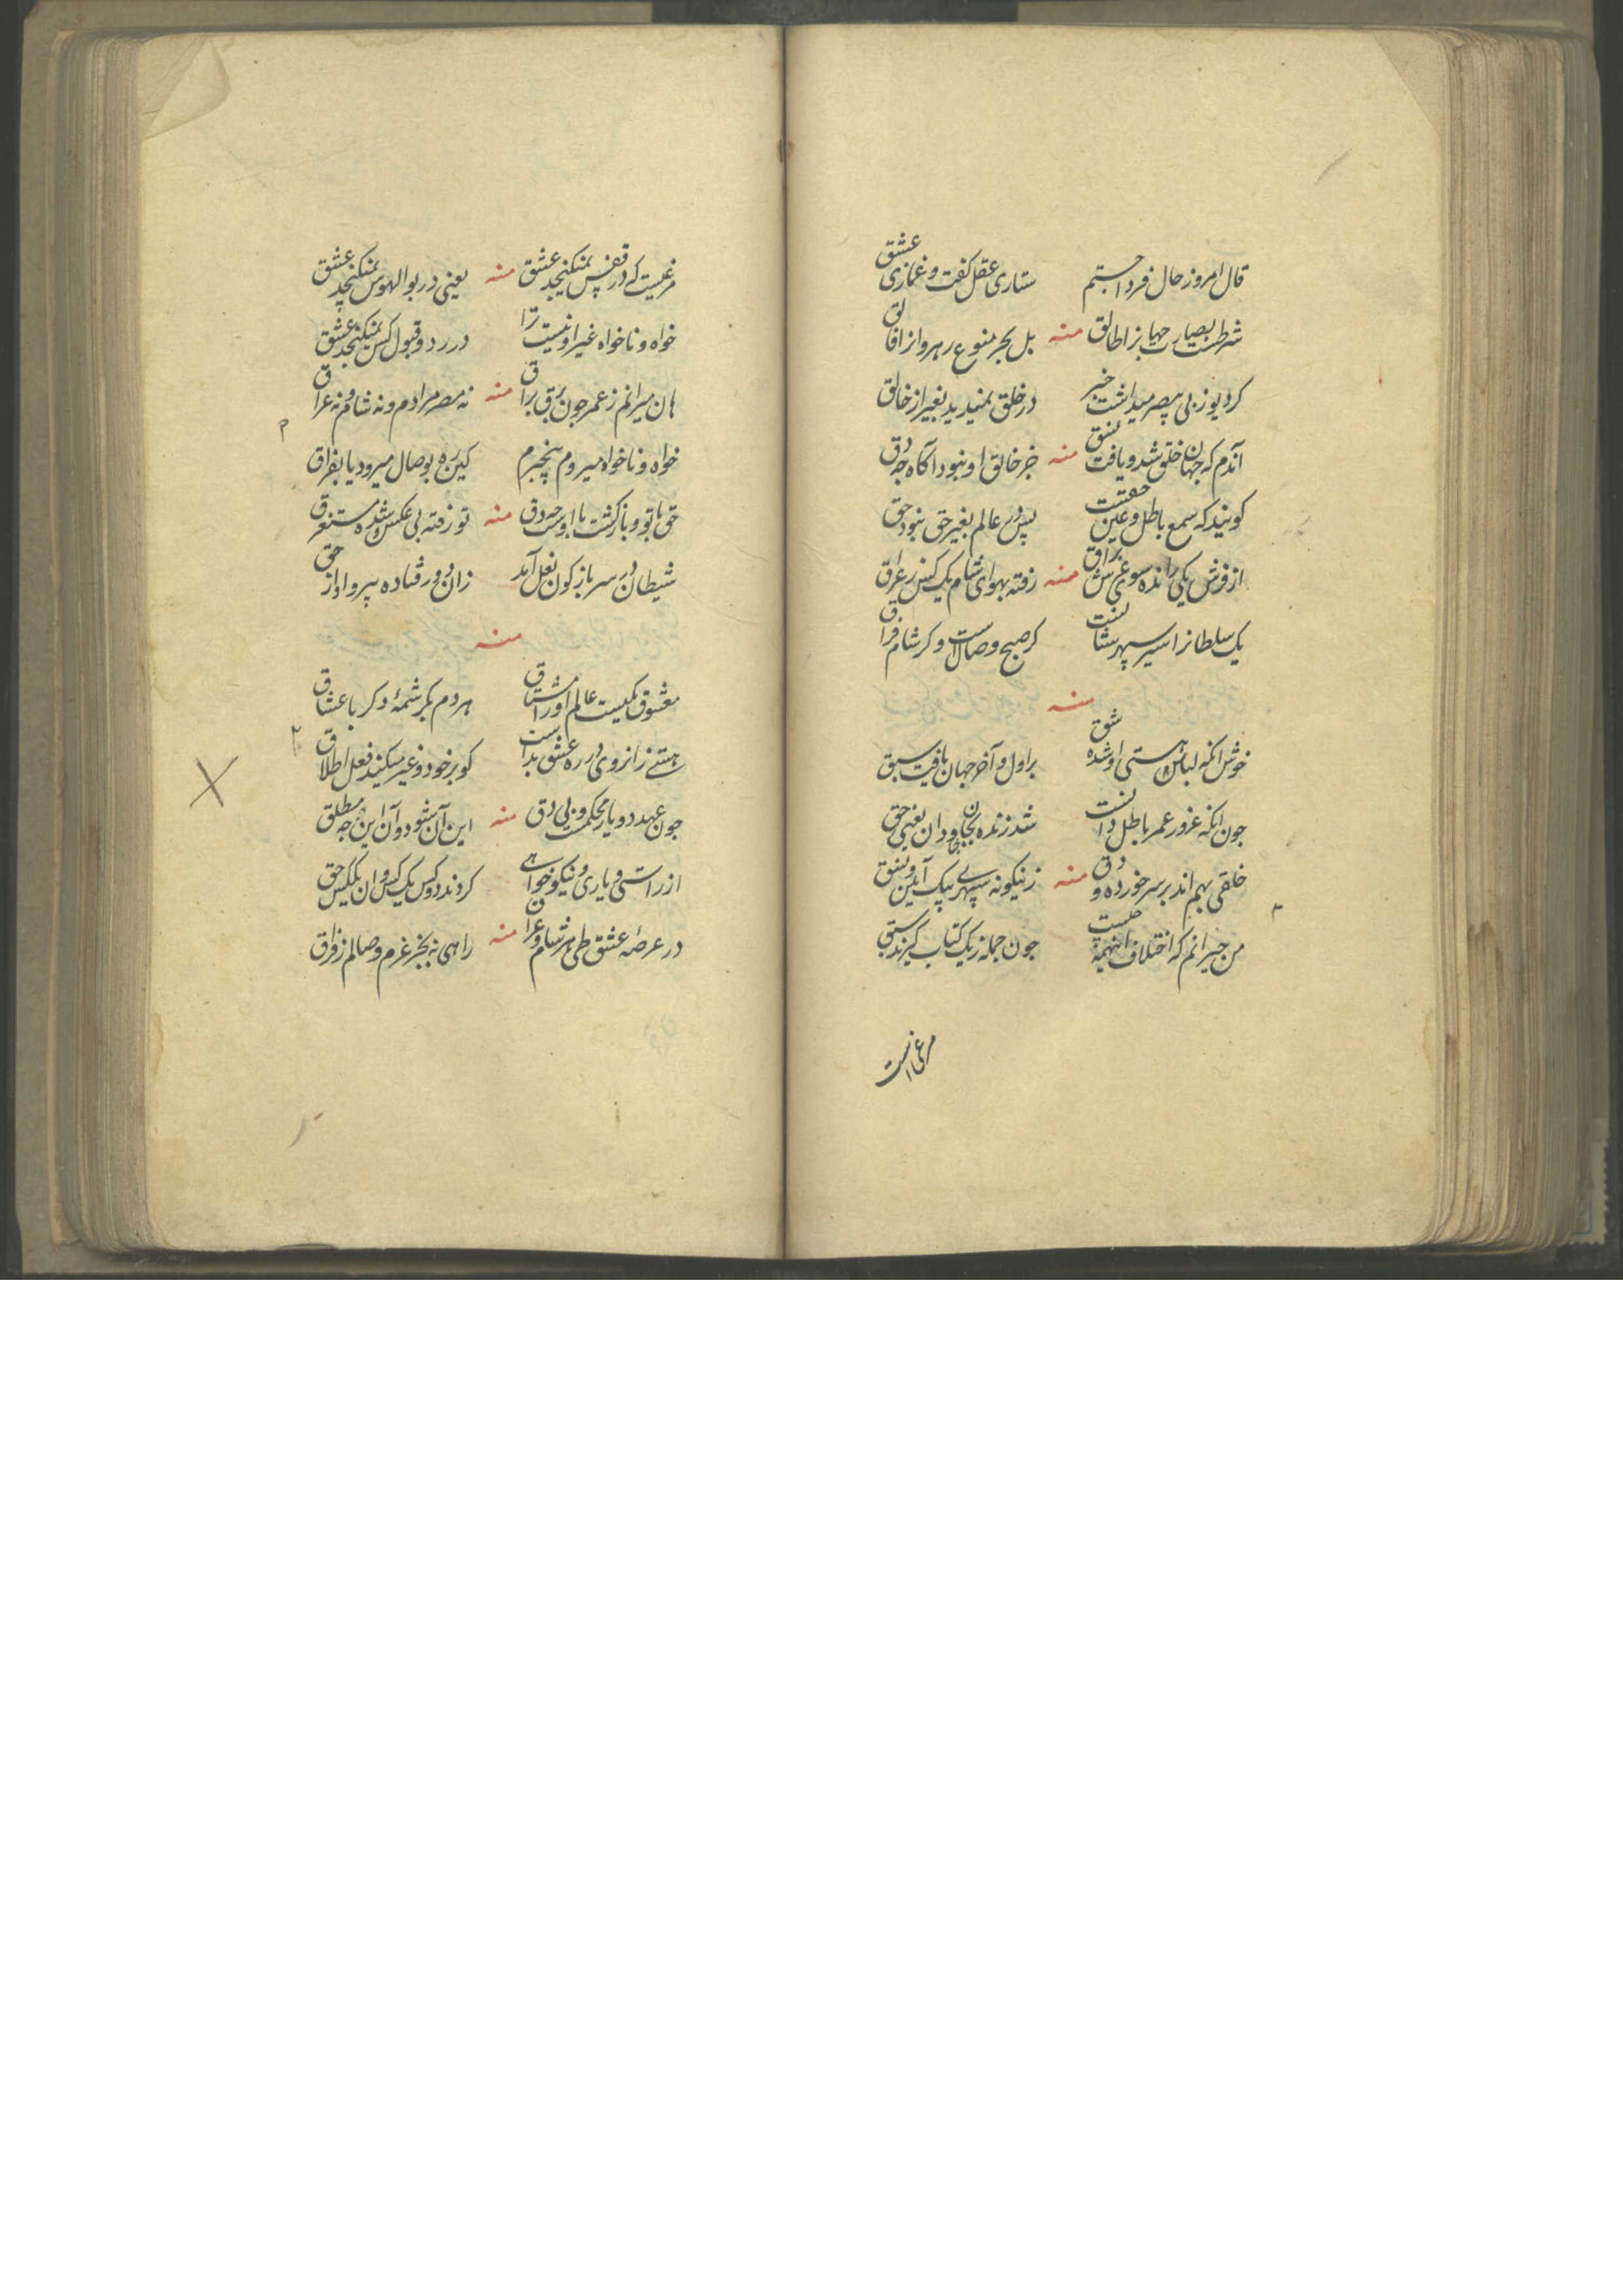 قال امروز حال فردا جستم ستاری عقل گفت و غمازی عشق
شرطست بصارت جهانرا طالق منه بل بحر منوع رهرو از
کرد یوز بی بصر میداشت خبر در خلق نمیدید بغیر از خالق
آندم که جهان خلق شد و یافت نسق منه خبر خالق او نبود آگاه
کویند که سمع باطل و عین حقست پس در عالم بغیر حق نبود حق
از فرش یکی رانده سوی عرش براق منه رفته بهوای شام یک کس ز عراق
یک سلطانرا اسیر سپهر کر صبح وصالست و کر شام فراق
منه
خوش انکه لباس هستی او شده شق بر اول و آخر جهان یافت سبق
جون انکه غرور عمر باطل دانست شد زنده جاودان یعنی حق
خلقی بهم اند بر سر خورده و دق منه زینکونه سپهری بیک آیین و نسق
من حیرانم که اختلاف اینهمه چیست جون جمله ز یک کتاب گیرند سبق
مرغی است
مرغیست که در قفس نمیکنجد عشق منه یعنی در بوالهوس نمیکنجد عشق
خواه و ناخواه غیر او نیست ترا در رد و قبول کس نمیکنجد عشق
هان میرانم ز عمر جون برق براق منه نه مصر مرادم و نه شام و نه عراق
خواه و ناخواه میروم بیخبرم کین ره بوصال میرود یا بفراق
حق با تو و بازکشت با اوست منه تو رفته بی عکس و شده مستغرق
شیطان در سر باز کون نعل آمد زان دور فتاده پیرو از حق
منه
معشوق یکیست عالم او را مشتاق هر دم بکرشمهٔ دکر با عشاق
هستی ز انروی در ره عشق بداست کو بر خود و غیر میکند فعل اطلاق
جون عهد دو یار محکمست و بی دق منه این آن شود و آن این مطلق
از راستی و یاری و نیکو خواهی کردند دو کس یک کس وان یک کس حق
در عرصه عشق طی هر شام و عراق منه راهی نه بجز عزم وصالم ز فراق